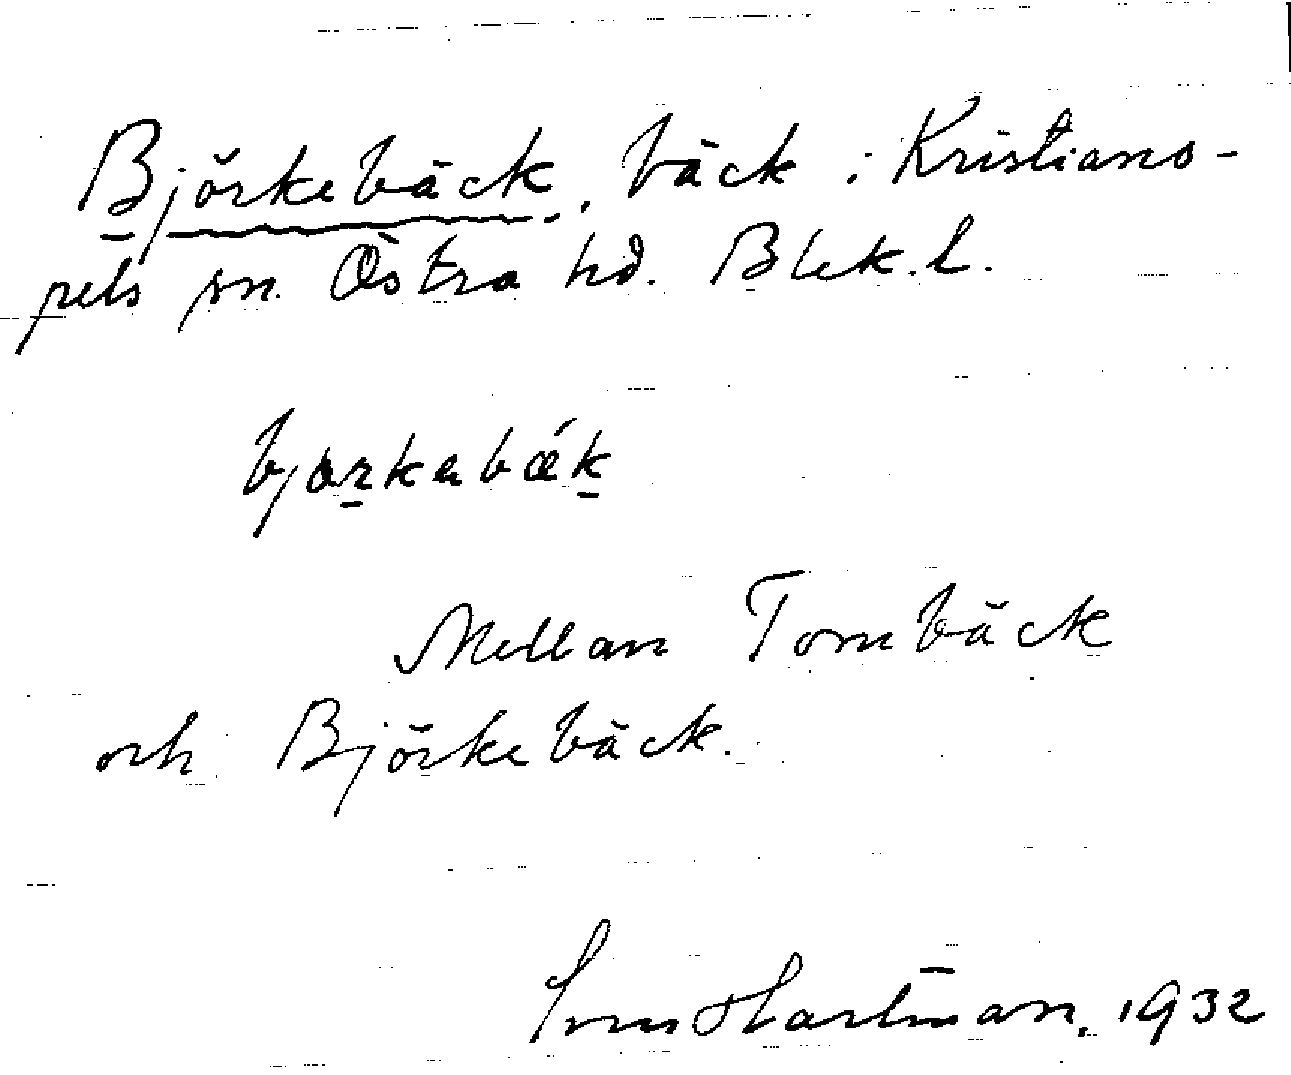 Björkebäck, bäck i Kristiano-
pels sn. Östra hd. Blek. l.
bjɶrkabǽk
Mellan Tombäck
och Björkebäck.
Hartman, 1932